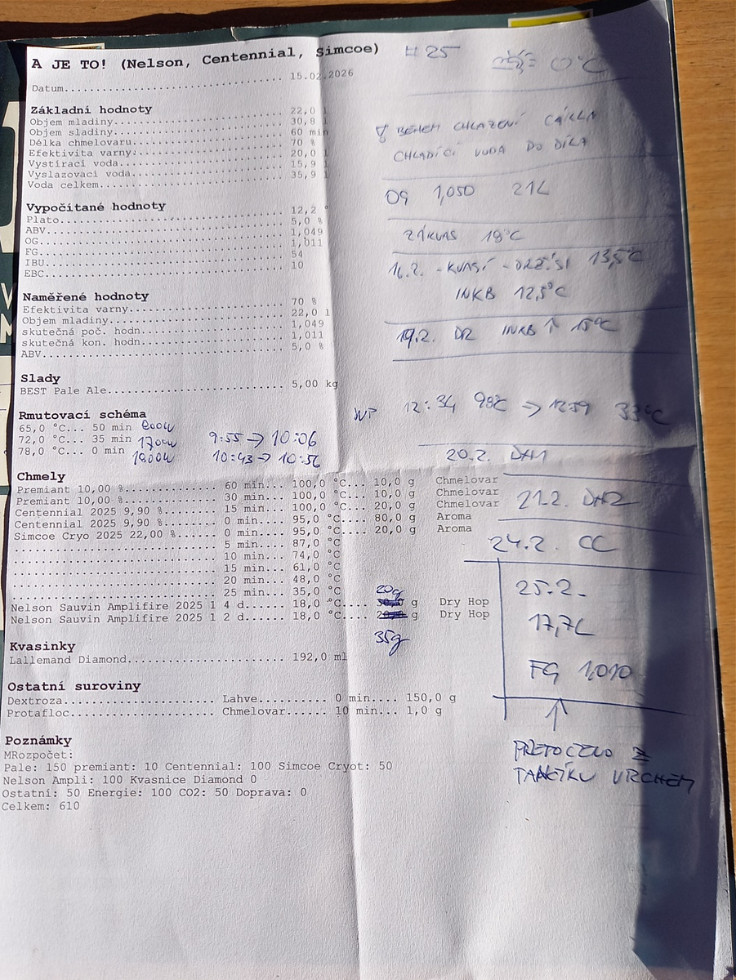 A JE TO! (Nelson, Centennial, Simcoe)
# 25
0°C
Datum.................................... 15.02.2026
Základní hodnoty
Objem mladiny............................ 22,0 l
Objem sladiny............................ 30,8 l
Délka chmelovaru......................... 60 min
Efektivita varny......................... 70 %
Vystírací voda........................... 20,0 l
Vyslazovací voda......................... 15,9 l
Voda celkem.............................. 35,9 l
BĚHEM CHLAZENÍ CÁKLA
CHLADÍCÍ VODA DO DÍLA
OG 1,050 21L
Vypočítané hodnoty
Plato.................................... 12,2 °
ABV...................................... 5,0 %
OG....................................... 1,049
FG....................................... 1,011
IBU...................................... 54
EBC...................................... 10
ZÁKVAS 19°C
16.2. - KVASÍ - DRŽÍ SI 13,5°C
INKB 12,5°C
19.2. DR INKB ↑ 15°C
Naměřené hodnoty
Efektivita varny......................... 70 %
Objem mladiny............................ 22,0 l
skutečná poč. hodn....................... 1,049
skutečná kon. hodn....................... 1,011
ABV...................................... 5,0 %
Slady
BEST Pale Ale............................ 5,00 kg
Rmutovací schéma
65,0 °C... 50 min
72,0 °C... 35 min 1700W 9:55 → 10:06
78,0 °C... 0 min 1900W 10:43 → 10:50
WP 12:34 98°C → 12:59 33°C
20.2. DH1
21.2. DH2
24.2. CC
Chmely
Premiant 10,00 %............. 60 min... 100,0 °C... 10,0 g Chmelovar
Premiant 10,00 %............. 30 min... 100,0 °C... 10,0 g Chmelovar
Centennial 2025 9,90 %....... 15 min... 100,0 °C... 20,0 g Chmelovar
Centennial 2025 9,90 %....... 0 min... 95,0 °C... 80,0 g Aroma
Simcoe Cryo 2025 22,00 %..... 0 min... 95,0 °C... 20,0 g Aroma
............................. 5 min... 87,0 °C
............................. 10 min... 74,0 °C
............................. 15 min... 61,0 °C
............................. 20 min... 48,0 °C
............................. 25 min... 35,0 °C
20g
Nelson Sauvin Amplifire 2025 1 4 d..... 18,0 °C.... g Dry Hop
Nelson Sauvin Amplifire 2025 1 2 d..... 18,0 °C.... g Dry Hop
35g
25.2.
17,7L
FG 1,010
↑
PŘETOČENO Z
TANČÍKU VRCHEM
Kvasinky
Lallemand Diamond........................ 192,0 ml
Ostatní suroviny
Dextroza.................... Lahve.......... 0 min.... 150,0 g
Protafloc................... Chmelovar...... 10 min... 1,0 g
Poznámky
MRozpočet:
Pale: 150 premiant: 10 Centennial: 100 Simcoe Cryot: 50
Nelson Ampli: 100 Kvasnice Diamond 0
Ostatní: 50 Energie: 100 CO2: 50 Doprava: 0
Celkem: 610